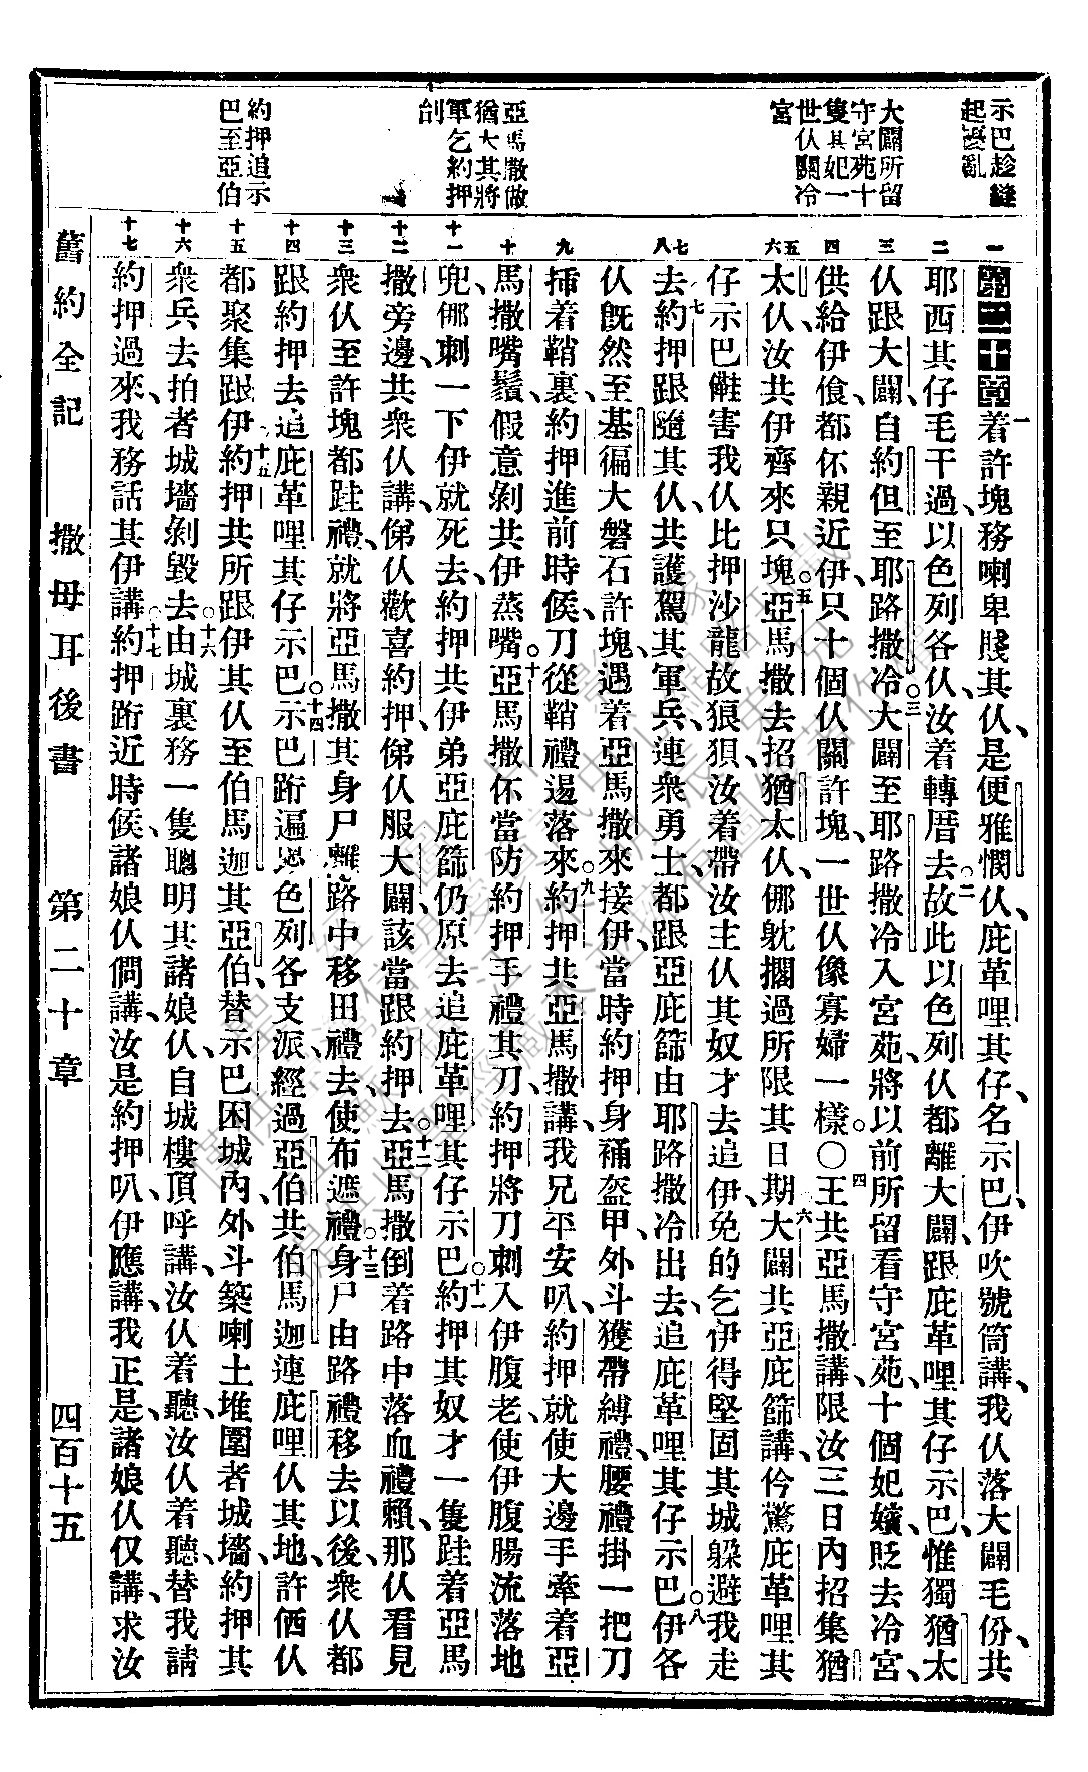 示巴趁縫
起擾亂
大闢所留
守宮苑十
隻其妃一
世仈關冷
宮
亞馬撒做
猶大其將
軍乞約押
刣
約押追示
巴至亞伯
一
二
三
四
五
六
七
八
九
十
十一
十二
十三
十四
十五
十六
十七
第二十章一着許塊務喇卑賤其仈、是便雅憫仈、庇革哩其仔、名示巴、伊吹號筒講、我仈落大闢毛份、共
耶西其仔毛干過、以色列各仈、汝着轉厝去。二故此以色列仈都離大闢、跟庇革哩其仔示巴、惟獨猶太
仈跟大闢、自約但至耶路撒冷。三大闢至耶路撒冷入宮苑、將以前所留看守宮苑、十個妃嬪、貶去冷宮、
供給伊飧、都伓親近伊、只十個仈關許塊、一世仈像寡婦一樣。〇四王共亞馬撒講、限汝三日內招集猶
太仈、汝共伊齊來只塊。五亞馬撒去招猶太仈、㑚躭擱過所限其日期、六大闢共亞庇篩講、仱驚庇革哩其
仔示巴儺害我仈比押沙龍故狼狽、汝着帶汝主仈其奴才去追伊、免的乞伊得堅固其城躲避我走
去。七約押跟隨其仈、共護駕其軍兵、連衆勇士、都跟亞庇篩由耶路撒冷出去、追庇革哩其仔示巴。八伊各
仈旣然至基徧大磐石許塊、遇着亞馬撒來接伊、當時約押身䘔盔甲、外斗獲帶縛禮、腰禮掛一把刀
揷着鞘裏、約押進前時候、刀從鞘禮逿落來。九約押共亞馬撒講、我兄平安叭、約押就使大邊手牽着亞
馬撒嘴鬚、假意剝共伊蒸嘴。十亞馬撒伓當防約押手禮其刀、約押將刀刺入伊腹老、使伊腹腸流落地
兜、㑚刺一下伊就死去、約押共伊弟亞庇篩仍原去追庇革哩其仔示巴。十一約押其奴才一隻跬着亞馬
撒旁邊、共衆仈講、俤仈歡喜約押、俤仈服大闢、該當跟約押去。十二亞馬撒倒着路中落血禮賴、那仈看見
衆仈至許塊都跬禮、就將亞馬撒其身尸離路中移田禮去、使布遮禮。十三身尸由路禮移去以後、衆仈都
跟約押去追庇革哩其仔示巴。十四示巴跡遍以色列各支派、經過亞伯、共伯馬迦連庇哩仈其地、許偭仈
都聚集跟伊。十五約押共所跟伊其仈至伯馬迦其亞伯、替示巴困城內、外斗築喇土堆圍者城墻、約押其
衆兵去拍者城墻剝毀去。十六由城裏務一隻聰明其諸娘仈、自城樓頂呼講、汝仈着聽、汝仈着聽、替我請
約押過來、我務話其伊講。十七約押跡近時候、諸娘仈僩講、汝是約押叭、伊應講、我正是、諸娘仈仅講、求汝
舊約全記　撒母耳後書　第二十章　四百十五